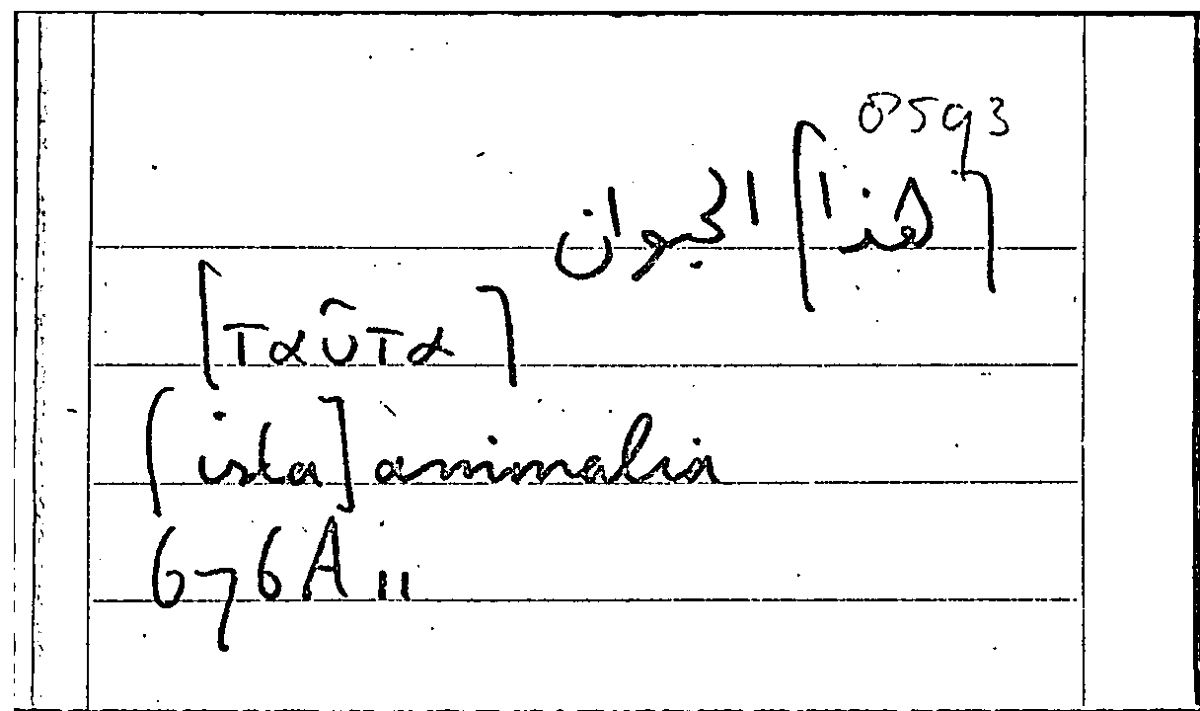 0593
[هذا] الحيوان
[ταῦτα]
[ista] animalia
676A11